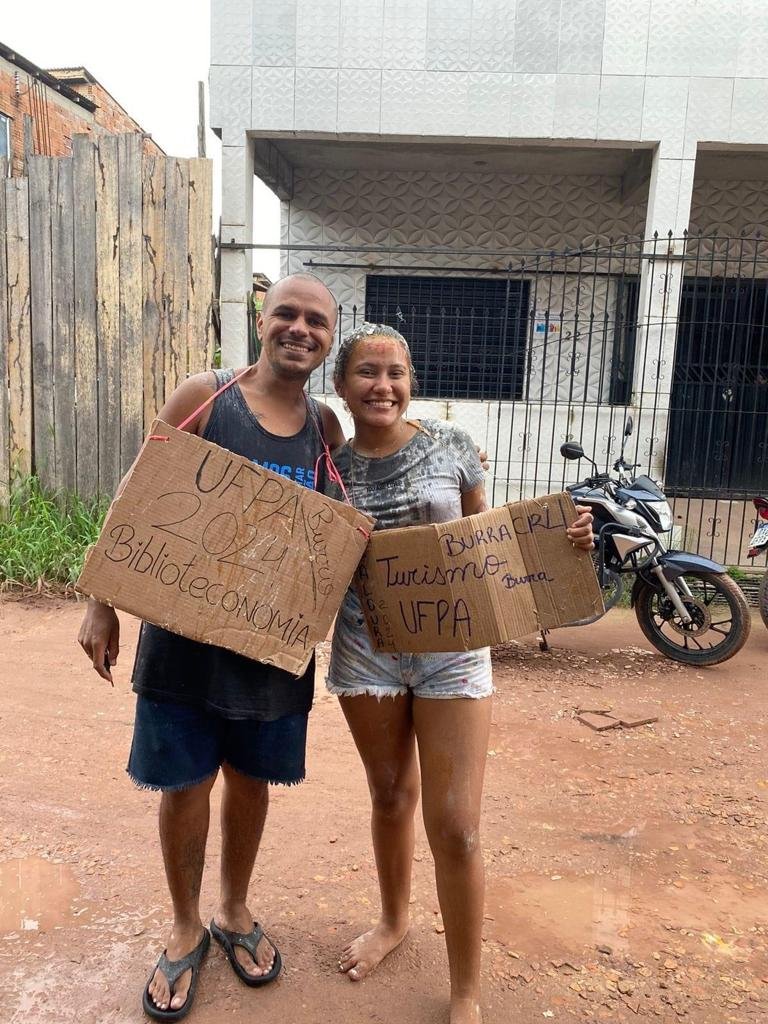 UFPA
2024
BiblioteCONOMIA
Burro
BURRA CIRLI
Turismo
Burra
UFPA
2024